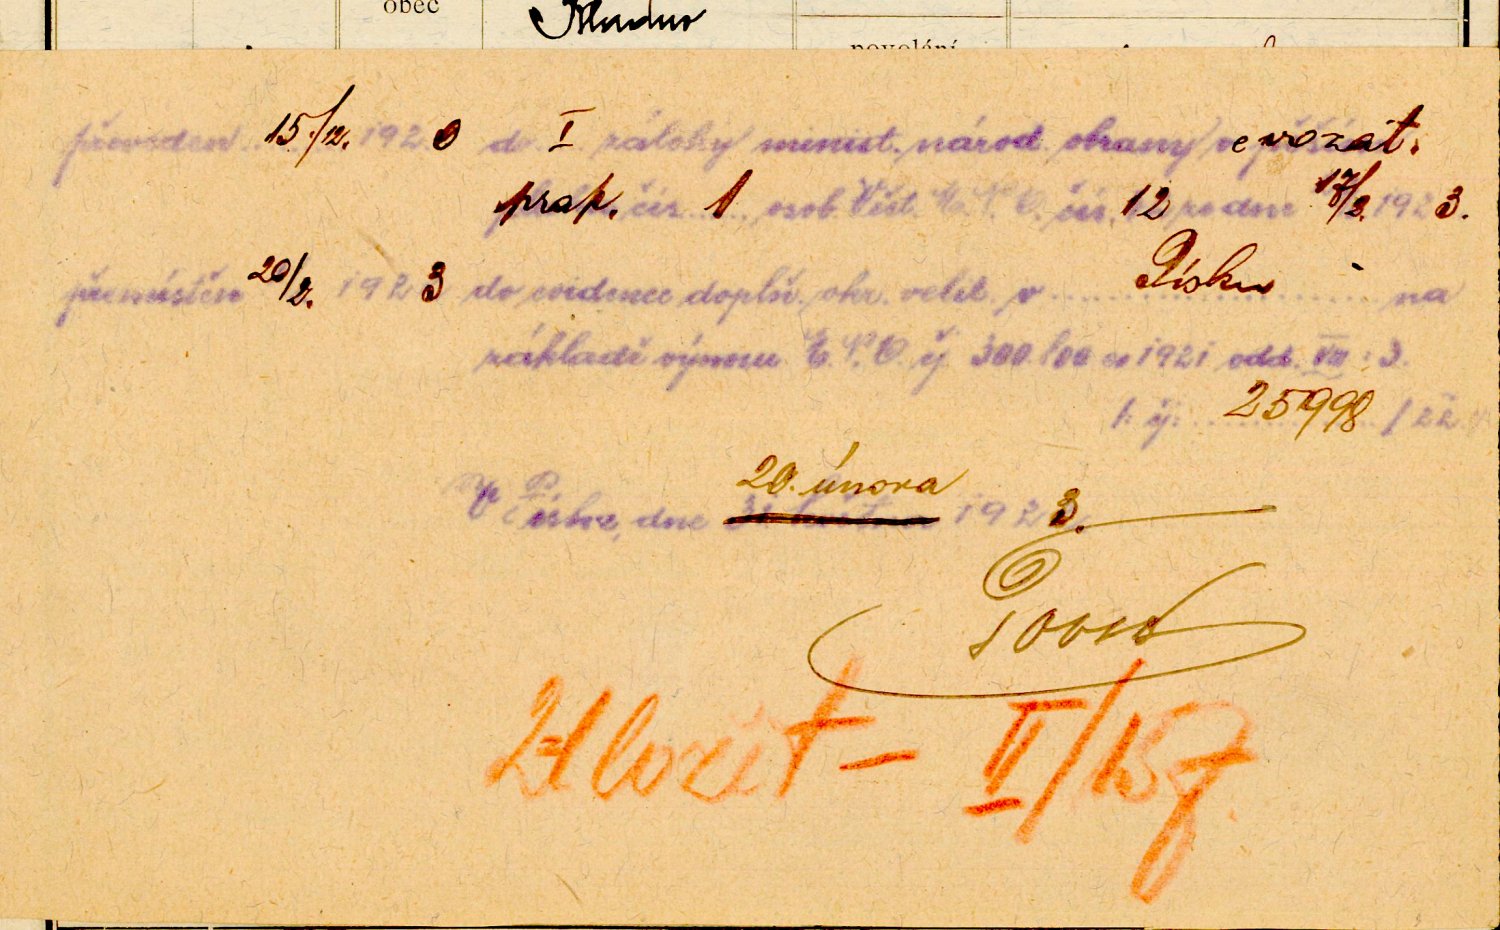 obec
Kladno
povolání
převeden 15./12. 1920 do I zálohy minist. národ. obrany vozat.
prap. čís. 1 osob. Věst. M. N. O. čís. 12 ze dne 17/2. 1923.
přemístěn 20/2. 1923 do evidence doplň. okr. velit. v Písku na
základě výnosu M. N. O. čj. 300.100 1921 odd. VIII : 3.
čj. 25998 / 22
V Písku, dne 20. února 1923.
založit - II/